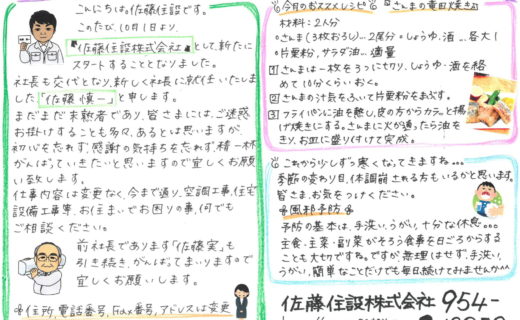 こんにちは。佐藤住設です。
このたび、10月1日より、
『佐藤住設株式会社』として、新たに
スタートすることとなりました。
社長も交代となり、新しく社長に就任いたしま
した「佐藤 慎一」と申します。
まだまだ未熟者であり、皆さまには、ご迷惑
お掛けすることも多々、あるとは思いますが、
初心を忘れず、感謝の気持ちを忘れず、精一杯
がんばっていきたいと思いますので宜しくお願
い致します。
仕事内容は変更なく、今まで通り、空調工事、住宅
設備工事等、お住まいでお困りの事、何でも
ご相談ください。
前社長であります「佐藤 実」も
引き続き、がんばってまいりますので
宜しくお願いします。
住所、電話番号、Fax番号、アドレスは変更
今月のおススメレシピ さんまの竜田焼き
材料:2人分
○さんま(3枚おろし)…2尾分 ○しょうゆ、酒…各大1
○片栗粉、サラダ油…適量
1 さんまは一枚を3つにきり、しょうゆ・酒を絡
めて10分くらいおく。
2 さんまの汁気をふいて片栗粉をまぶす。
3 フライパンに油を熱し、皮の方からカラッと揚
げ焼きにする。さんまに火が通ったら油を
きり、お皿に盛り付けて完成。
これから少しずつ寒くなってきますね…
季節の変わり目、体調崩される方もいるかと思います。
皆さま、お気をつけください。
風邪予防
予防の基本は、手洗い、うがい、十分な休息…
主食・主菜・副菜がそろう食事を日ごろからする
ことも大切ですね。ですが、無理はせず、手洗い、
うがい、簡単なことだけでも毎日続けてみませんか
佐藤住設株式会社 954-